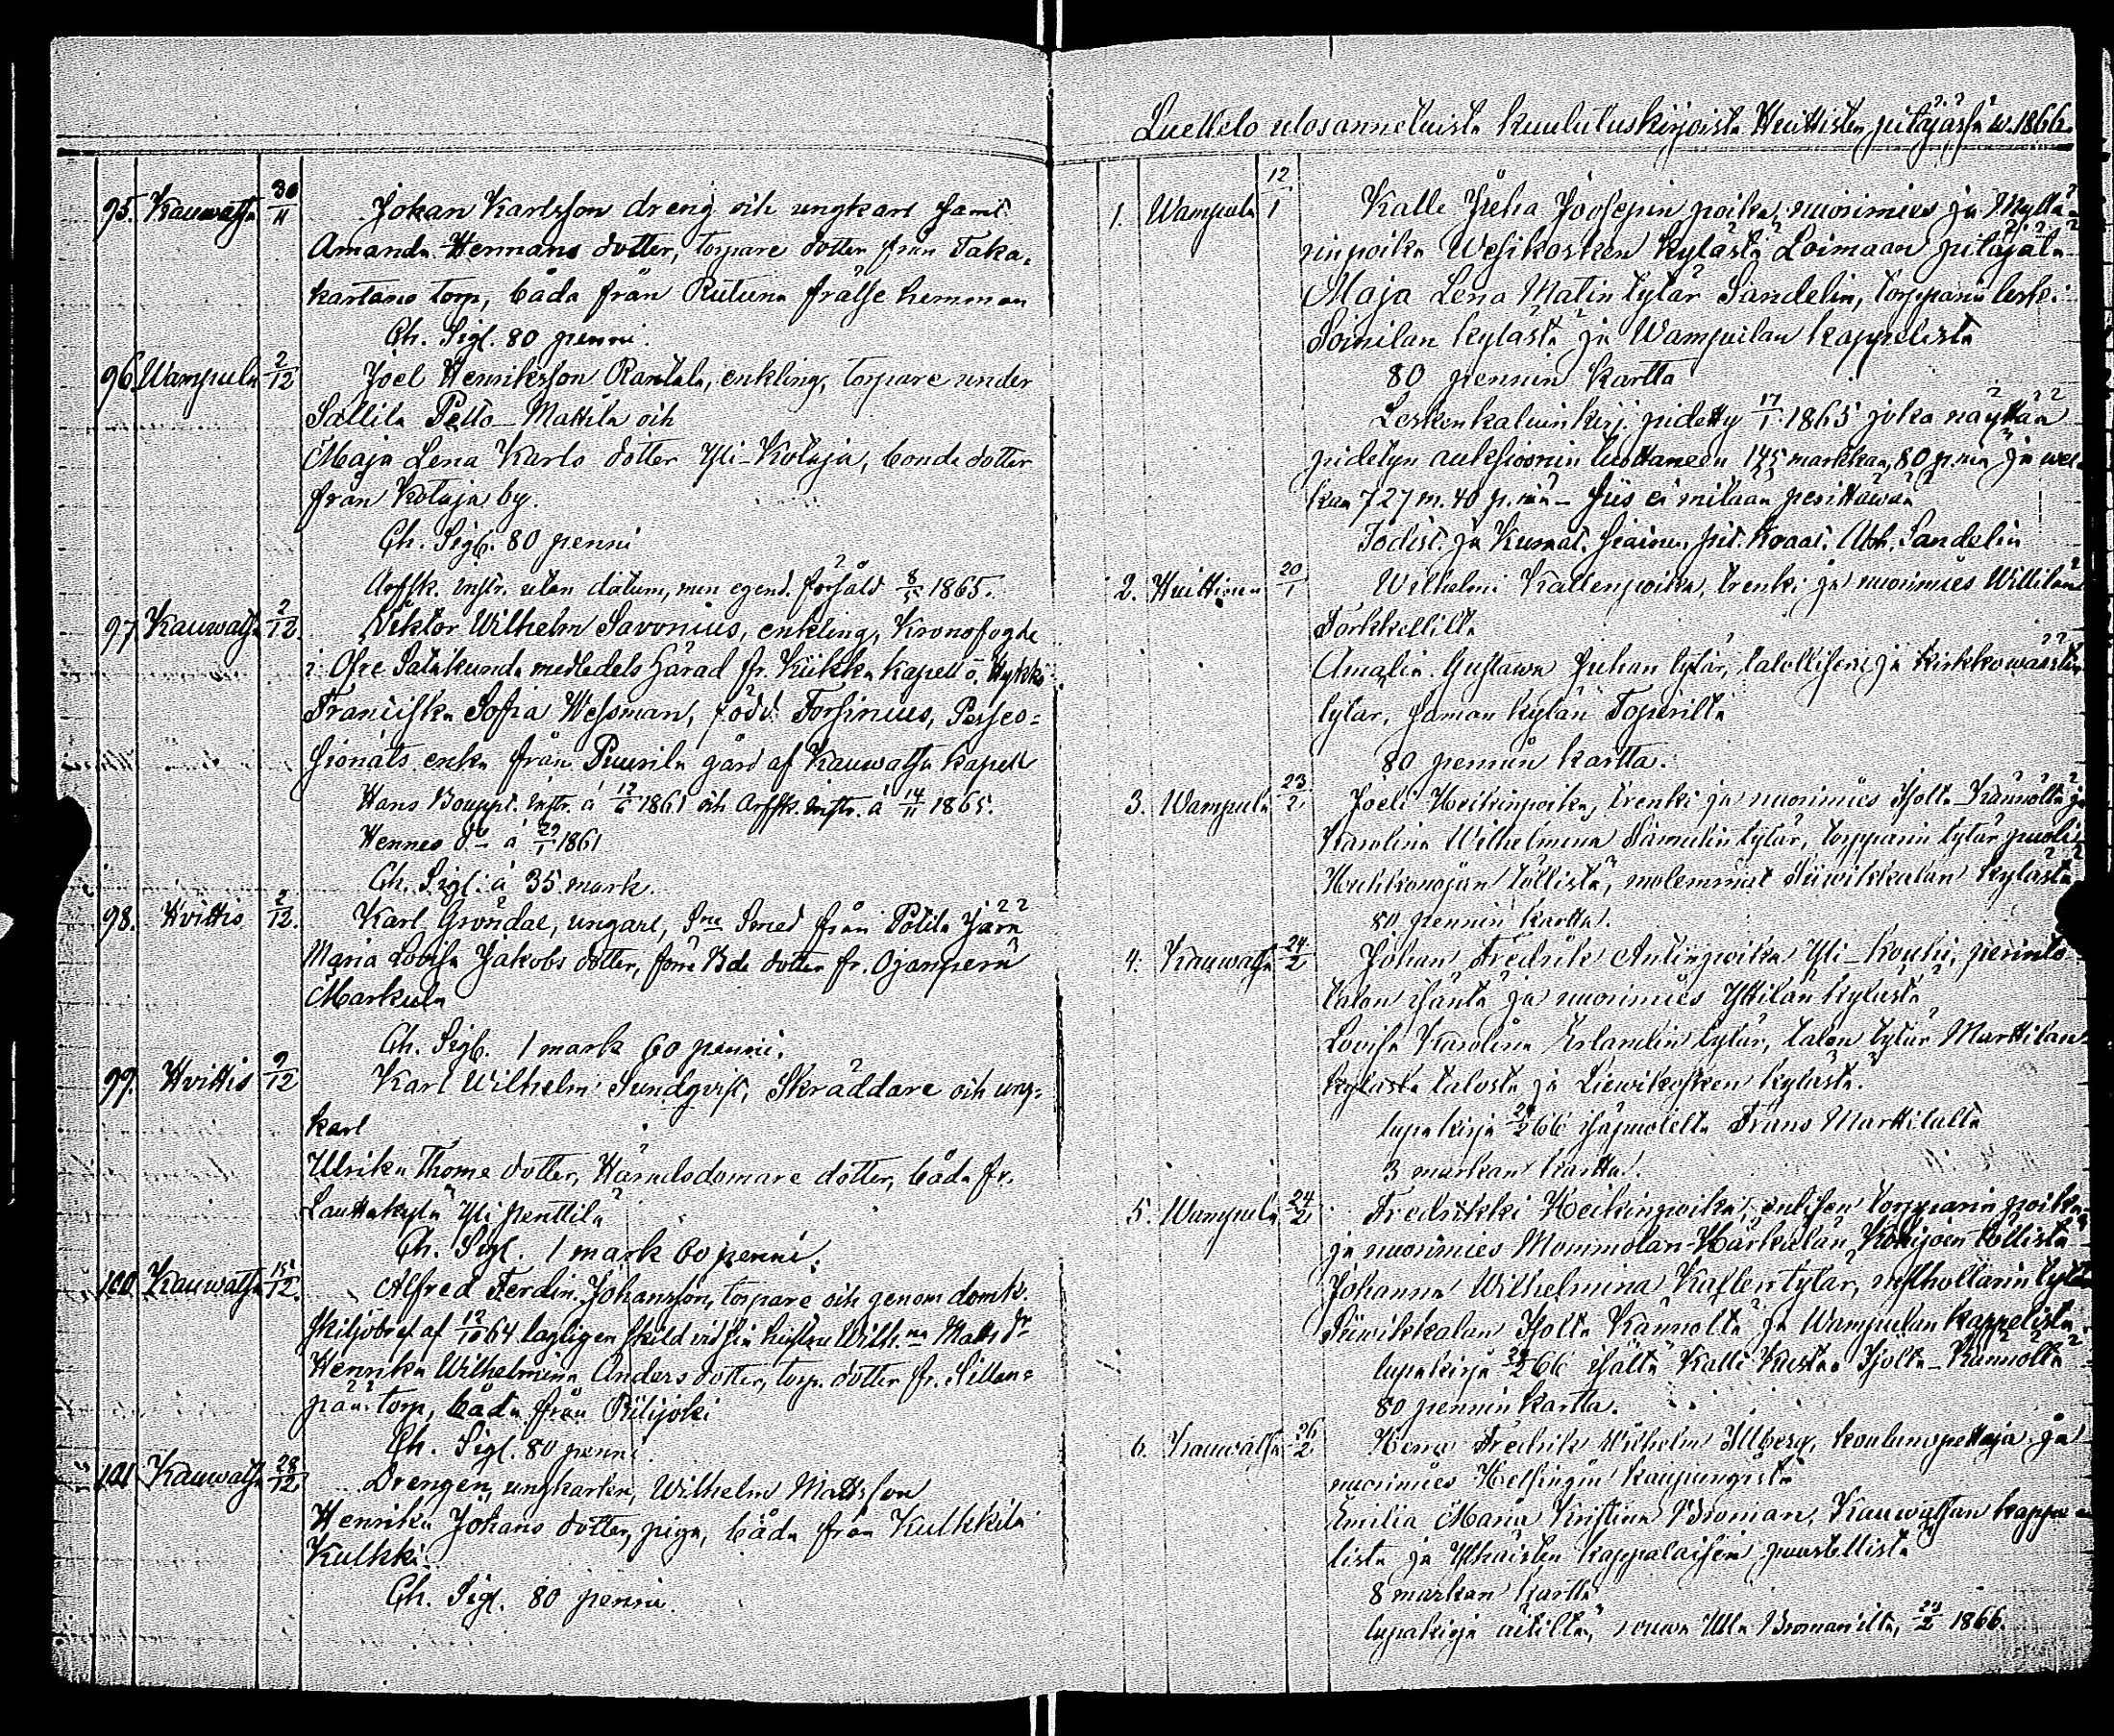 95. Kauwatsa 30/11 Johan Karlsson dreng och ungkarl samt
Amanda Hermans dotter, torpare dotter från Taka-
kartano torp, båda från Rutuna frälse hemman
Ch. Sigl. 80 penni.
96. Wampula 2/12 Joel Henriksson Rantala, enkling, torpare under
Sallila Pello-Mattila och
Maja Lena Karls dotter Yli-Kotaja, bonde dotter
från Kotaja by.
Ch. Sigl. 80 penni
Arfsk. instr. utan datum, men egend. försåld 8/5 1865.
97 Kauwatsa 2/12. Viktor Wilhelm Savonius, enkling, Kronofogde
i Öfre Satakunda medledels härad fr. Kiikka kapell o.
Franciska Sofia Wessman, född Forsinius, Posses-
sionats enka från Puurila gård af Kauwatsa kapell
Hans Bouppt. instr. á 12/6 1861 och Arfsk. instr. á 14/11 1865.
Hennes do á 29/1 1861
Ch. Sigl. á 35 mark.
98. Hvittis 2/12. Karl Gröndal, ungkarl, Sme Smed från Potila Jära
Maria Lovisa Jakobs dotter, förre Bde dotter fr. Ojanperä
Markula
Ch. Sigl. 1 mark 60 penni.
99. Hvittis 9/12 Karl Wilhelm Sundqvist, Skräddare och ung-
karl
Ulrika Thome dotter, Häradsdomare dotter, båda fr.
Lauttakylä Yli Penttilä
Ch. Sigl. 1 mark 60 penni.
100. Kauwatsa 15/12. Alfred Ferdin. Johansson, torpare och genom domk.
skiljobref af 12/10 64 lagligen skild vid sin hustru Wilh.na Matts dr
Henrika Wilhelmina Anders dotter, torp. dotter fr. Sillan-
pää torp, båda från Piilijoki
Ch. Sigl. 80 penni.
101. Kauwatsa 28/12 Drengen, ungkarlen, Wilhelm Mattsson
Henrika Johans dotter, piga, båda från Kulkkila
Kulkki.
Ch. Sigl. 80 penni.
Luettelo ulosannetuista kuulutuskirjoista Huittisten pitäjässä w. 1866.
1. Wampula 12/1 Kalle Juha Joosepin poika, nuorimies ja Myllä-
rinpoika Wesikosken kylästä Loimaan pitäjätä
Maja Lena Matin tytär Sandelin, torpparin leski
Soinilan kylästä ja Wampulan kappelista
80 pennin kartta
Leskenkaluunkirj. pidetty 17/1 1865 joka näyttää
pidetyn auksioonin tuottaneen 145 markkaa, 80 p.niä ja wel-
kaa 727 m. 40 p.niä - siis ei mitään perittäwää
Todist. ja Abr. Sandelin
2. Huittinen 20/1 Wilhelmi Kallenpoika, trenki ja nuorimies Willilän
Torkkelilta
Amalia Gustawa Juhan tytär, talollisen ja kirkkowäärtin
tytär, saman kylän Toperilta
80 pennin kartta.
3. Wampula 23/2 Joeli Heikinpoika, trenki ja nuorimies Isolta-Kännöltä ja
Karolina Wilhelmina Samulin tytär, torpparin tytär puoli-
Huhkonojan töllistä, molemmat Siiwikkalan kylästä
80 pennin kartta.
4. Kauwatsa 24/2 Johan Fredrik Antinpoika Yli-Kouhi, perintö-
talon isäntä ja nuorimies Yttilän kylästä
Lovisa Karolina Erlandin tytär, talon tytär Marttilan
kylästä talosta ja Liewikosken kylästä.
lupakirja 24/2 66 isäpuolelta Frans Marttilalta
3 markan kartta.
5. Wampula 24/2 Fredrikki Heikinpoika, entisen torpparin poika
ja nuorimies Mommolan-Härkälän Kokijoen töllistä
Johanna Wilhelmina Kallen tytär, tytär
Siiwikkalan Isolta Kännöltä ja Wampulan kappelista.
lupakirja 24/2 66 isältä Kalli Kustaa Isolta-Kännöltä
80 pennin kartta.
6. Kauwatsa 26/2 Herra Fredrik Wilhelm Illberg, koulunopettaja ja
nuorimies Helsingin kaupungista
Emilia Maria Kristina Broman, Kauwatsan kappe-
lista ja Yttäisten kappalaisen puustellista
8 markan kartta
lupakirja äitiltä, rouwa Ulla Bromanilta, 23/2 1866.